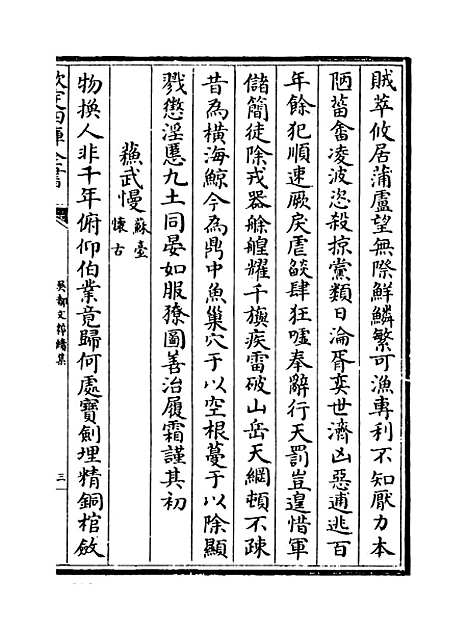 賊萃攸居蒲盧望無際鮮鱗繁可漁專利不知厭力本
陋菑畬凌波恣殺掠黨類日淪胥奕世濟凶惡逋逃百
年餘犯順速厥戾虐燄肆狂噓奉辭行天罰豈遑惜軍
儲簡徒除戎器艅艎耀千旟疾雷破山岳天綱頓不疎
昔為橫海鯨今為鼎中魚巢穴于以空根蔓于以除顯
戮懲淫慝九土同晏如服獠圖善治履霜謹其初
蘇武慢蘇臺懷古
物換人非千年俯仰伯業竟歸何處寶劍埋精銅棺斂
欽定四庫全書
吳都文粹續集
三